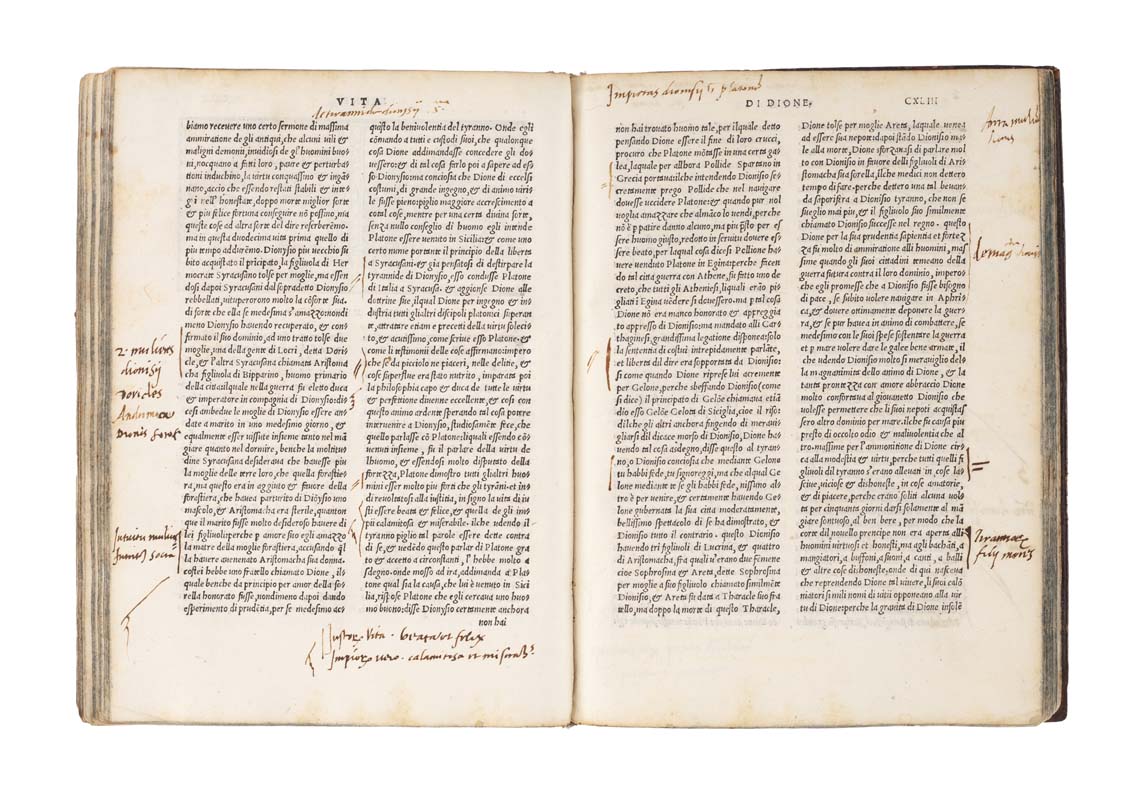 VITA
biamo recevere uno certo sermone di massima
ammiratione de gli antiqui, che alcuni uili &
maligni demoni, inuidiosi de gl'huomini buo
ni, nocquano a fini loro, paure & perturba-
tioni induchino, la uirtu conquassino & ingā
nano, accio che essendo restati stabili & inte-
gri nell'honestate, doppo morte miglior sorte
& piu felice fortuna conseguire nō possino, ma
queste cose ad altra sorte del dire reserberēmo-
ma in questa duodecima uita prima quello di
piu tempo addurēmo. Dionysio piu uecchio su
bito acquistato il pricipato, la figliuola di Her
mocrate Syracusano tolse per moglie, ma essen
dosi dapoi Syracusani dal sopradetto Dionysio
rebbellati, uituperorono molto la cōsorte sua.
di sorte che ella se medesima s'amazzo: nondi
meno Dionysio hauendo recuperato, & con-
firmato il suo dominio, a uno tratto tolse due
moglie, una della gente di Locri, detta Dori
cle, & l'altra Syracusana chiamata Aristoma
cha figliuola di Bipparino, huomo primario
della citta: ilquale nella guerra fu eletto duca
& imperatore in compagnia di Dionysio: di-
cesi ambedue le moglie di Dionysio essere an-
date a marito in uno medesimo giorno, &
equalmente esser uissute insieme tanto nel mā
giare quanto nel dormire, benche la moltitu
dine Syracusana desideraua che hauesse piu
la moglie delle terre loro, che quella forastie-
ra, ma questo era in aggiuto & fauore della
forastiera, che hauea parturito di Diōysio uno
mascolo, & Aristoma: cha era sterile, quanton
que il marito fusse molto desideroso hauere di
lei figliuoli: perche p amore suo egli amazzo
la matre della moglie forastiera, accusando ql
la hauere auenenato Aristomacha sua donna.
costei hebbe uno fratello chiamato Dione, il-
quale benche da principio per amor della so-
rella honorato fusse, nondimeno dapoi dando
esperimento di prudētia, per se medesimo ac-
quisto la beniuolentia del tyranno. Onde egli
cōmando a tutti e custodi suoi, che qualonque
cosa Dione addimandasse concedere gli do-
uessero: & di tal cosa ferlo poi a sapere ad es
so Dionysio: ma conciosia che Dione di eccelsi
costumi, di grande ingegno, & di animo uiris
le fusse pieno: piglio maggiore accrescimento a
cotal cose, mentre per una certa diuina sorte,
senza nullo conseglio di huomo egli intende
Platone essere uenuto in Sicilia: & come uno
certo nume portante il principio della liberta
a Syracusani: & per pensitosi di destirpare la
tyrannide di Dionysio, esso condusse Platone
di Italia a Syracusa. & aggionse Dione alle
dottrine sue, ilqual Dione per ingegno & in-
dustria tutti glialtri discipoli platonici superan
te, attrattare etiam e precetti della uirtu soleci-
to, commosse, come scriue esso Platone: &
come li testimonii delle cose affirmano: impero
che se da piccolo ne piaceri, nelle deline, &
cose superflue era stato nutrito, imparata poi
la philosophia capo & duca de tutte le uirtu
& perfetione diuenne eccellente, & cosi con
questo animo ardente sperando tal cosa potere
interuenire a Dionysio, studiosamēte fece, che
quello parlasse cō Platone: liquali essendo cō-
uenuti insieme, fu il parlare della uirtu de
lhuomo, & essendosi molto disputato della
fortezza, Platone dimostro tutti glialtri huo-
mini esser molto piu forti che gli tyrāni: et in-
di reuoltatosi alla iustitia, in signo la uita di iu
sti essere beata & felice, & quella de gli im-
pii calamitosa & miserabile. ilche udendo il-
tyranno piglio tal parole essere dette contra
di se, & uedēdo questo parlar di Platone gra
to & accetto a circonstanti, l'hebbe molto a
sdegno: onde mosso ad ira, addimanda a Pla
tone qual sia la causa, che lui è uenuto in Sici
lia, rispose Platone che egli cercaua uno huo
mo buono: disse Dionysio certamente anchora
non hai
DI DIONE.
CXLIII
non hai trouato huomo tale, per ilquale detto
pensando Dione essere il fine di loro crucci,
procuro che Platone mōtasse in una certa ga-
lea, laquale per allhora Pollide Spartano in
Grecia portaua: ilche intendendo Dionisio se-
cretamente prego Pollide che nel nauigare
douesse uccidere Platone: & quando pur nol
uoglia amazzare che almāco lo uendi, perche
nō è p patire danno alcuno, ma piu ꝑsto per es
sere huomo giusto, redoto in seruitu douere es-
sere beato, per laqual cosa dicesi Pollione ha-
uere uenduto Platone in Egina: perche fincate
do tal citta guerra con Athene, fu fatto uno de
creto, che tutti gli Atheniesi, liquali erāo pi-
gliati i Egina uēdere si douessero. ma p tal cosa
Dione nō era manco honorato & appreggia
to appresso di Dionisio: ma mandato alli Car-
thaginesi, grandissima legatione disponea: solo
la sententia di costui intrepidamente parlāte,
et liberta del dire era sopportata da Dionisio:
si come quando Dione riprese lui acremente
per Gelone, perche sbeffando Dionisio (come
si dice) il principato de Gelōe chiamaua etiā
dio esso Gelōe Gelota di Siciglia, cioe il riso:
dilche gli altri anchora fingendo di meraui-
gliarsi del dicace morso di Dionisio, Dione ha-
uendo tal cosa asdegno, disse questo al tyran-
no, o Dionisio conciosia che mediante Gelone
tu habbi fede, tu signoreggi, ma che al qual Ge
lone mediante te se gli habbi fede, nissuno al-
tro è per uenire, & certamente hauendo Ge-
lone gubernata la sua citta moderatamente,
bellissimo spettacolo di se ha dimostrato, &
Dionisio tutto il contrario. questo Dionisio
hauendo tri figliuoli di Lucrina, & quattro
di Aristomacha, fra quali u'erano due femene
cioe Sophrosina & Areta, dette Sophrosina
per moglie a suo figliuolo chiamato similmēte
Dionisio, & Areta fu data a Tharacle suo fra
tello, ma doppo la morte di questo Tharacle,
Dione tolse per moglie Areta, laquale uenea
ad essere sua nepote: dapoi stādo Dionisio ma-
le alla morte, Dione sforzauasi di parlare mol
to con Dionisio in fauore delli figliuoli di Aris
stomacha sua sorella, ilche medici non dettero
tempo di fare. perche dettero una tal beuan-
da saporifera a Dionisio tyranno, che non se
sueglio mai piu, & il figliuolo suo similmente
chiamato Dionisio successe nel regno. questo
Dione per la sua prudentia sapientia et fortez
za fu molto di ammiratione alli huomini, mas
sime quando gli suoi cittadini temeano della
guerra futura contra il loro dominio, impero-
che egli promesse che a Dionisio fusse bisogno
di pace, se subito uolere nauigare in Aphri-
ca, & douere ottimamente deponere la guer-
ra, & se pur hauea in animo di combattere, se
medesimo con le suoi spese sostentare la guerra
et p mare uolere dare le galee bene armate, il
che udendo Dionisio molto si merauiglio de
la magnanimita dello animo di Dione, & la
tanta prontezza con amore abbraccio Dione
molto confortaua al giouaneto Dionisio che
uolesse permettere che li suoi nepoti acquistas-
sero altro dominio per mare. ilche fu causa piu
presto di occolto odio & maliuolentia che al
tro. massime per l'ammonitione di Dione cir-
ca alla modestia & uirtu, perche tutti quelli fi
gliuoli dil tyranno s'erano alleuati in cose las-
sciue, uiciose & dishoneste, in cose amatorie,
& di piacere, perche erano soliti alcuna uol-
ta per cinquanta giorni darsi solamente al mā
giare sontuoso, al ben bere, per modo che la
corte dil nouello prencipe non era aperta alli
huomini uirtuosi et honesti, ma agli bachāti, a
mangiatori, a buffoni, a suoni, a canti, a balli
& a simile cose di honeste: onde di qui nasceua
che reprendendo Dione tal uiuere, li suoi calō
niatori a simili nomi di uitii opponeano alla uir
tu di Dione: perche la grauita di Dione insolē
de tirannide dionysij
2. mulieres
dionysij
Doricles
Intuitu mulieris
Iustorz Vita. beata et felix
Impiorz vero. calamitosa et miserab.